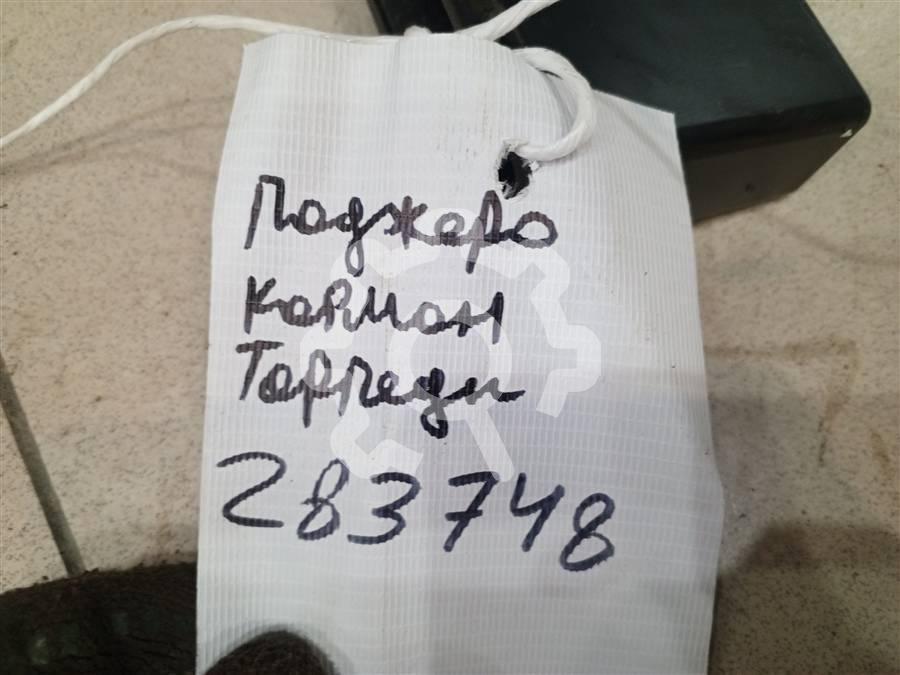 Поджеро
Корман
Торпеди
283748